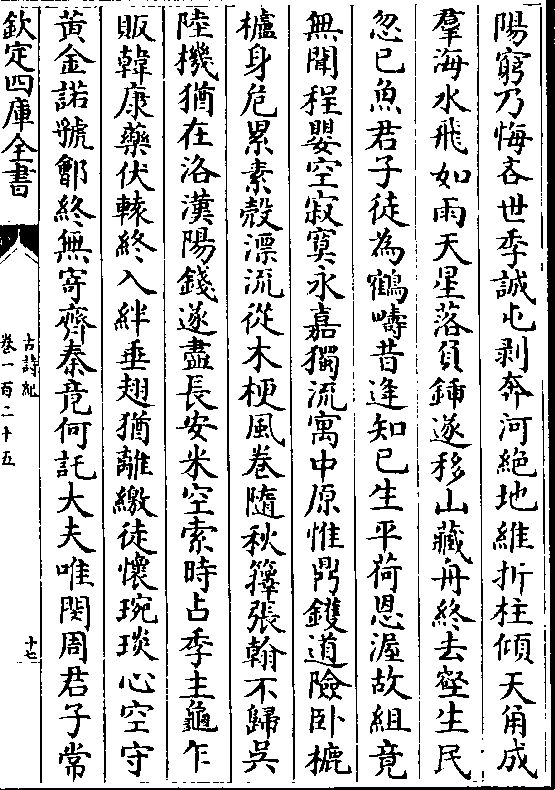 陽窮乃悔吝世季誠屯剥奔河絶地維折柱傾天角成
羣海水飛如雨天星落負鍤遂移山藏舟終去壑生民
忽已魚君子徒為鶴疇昔逢知已生平荷恩渥故組竟
無聞程嬰空寂寞永嘉獨流寓中原惟鼎鑊道險卧櫖
櫨身危累素殼漂流從木梗風卷隨秋籜張翰不歸吳
陸機猶在洛漢陽錢遂盡長安米空索時占季主龜乍
販韓康藥伏轅終入絆垂翅猶離繳徒懷琬琰心空守
黄金諾虢鄶終無寄齊秦竟何託大夫唯閔周君子常
欽定四庫全書
古詩紀
卷一百二十五
十七